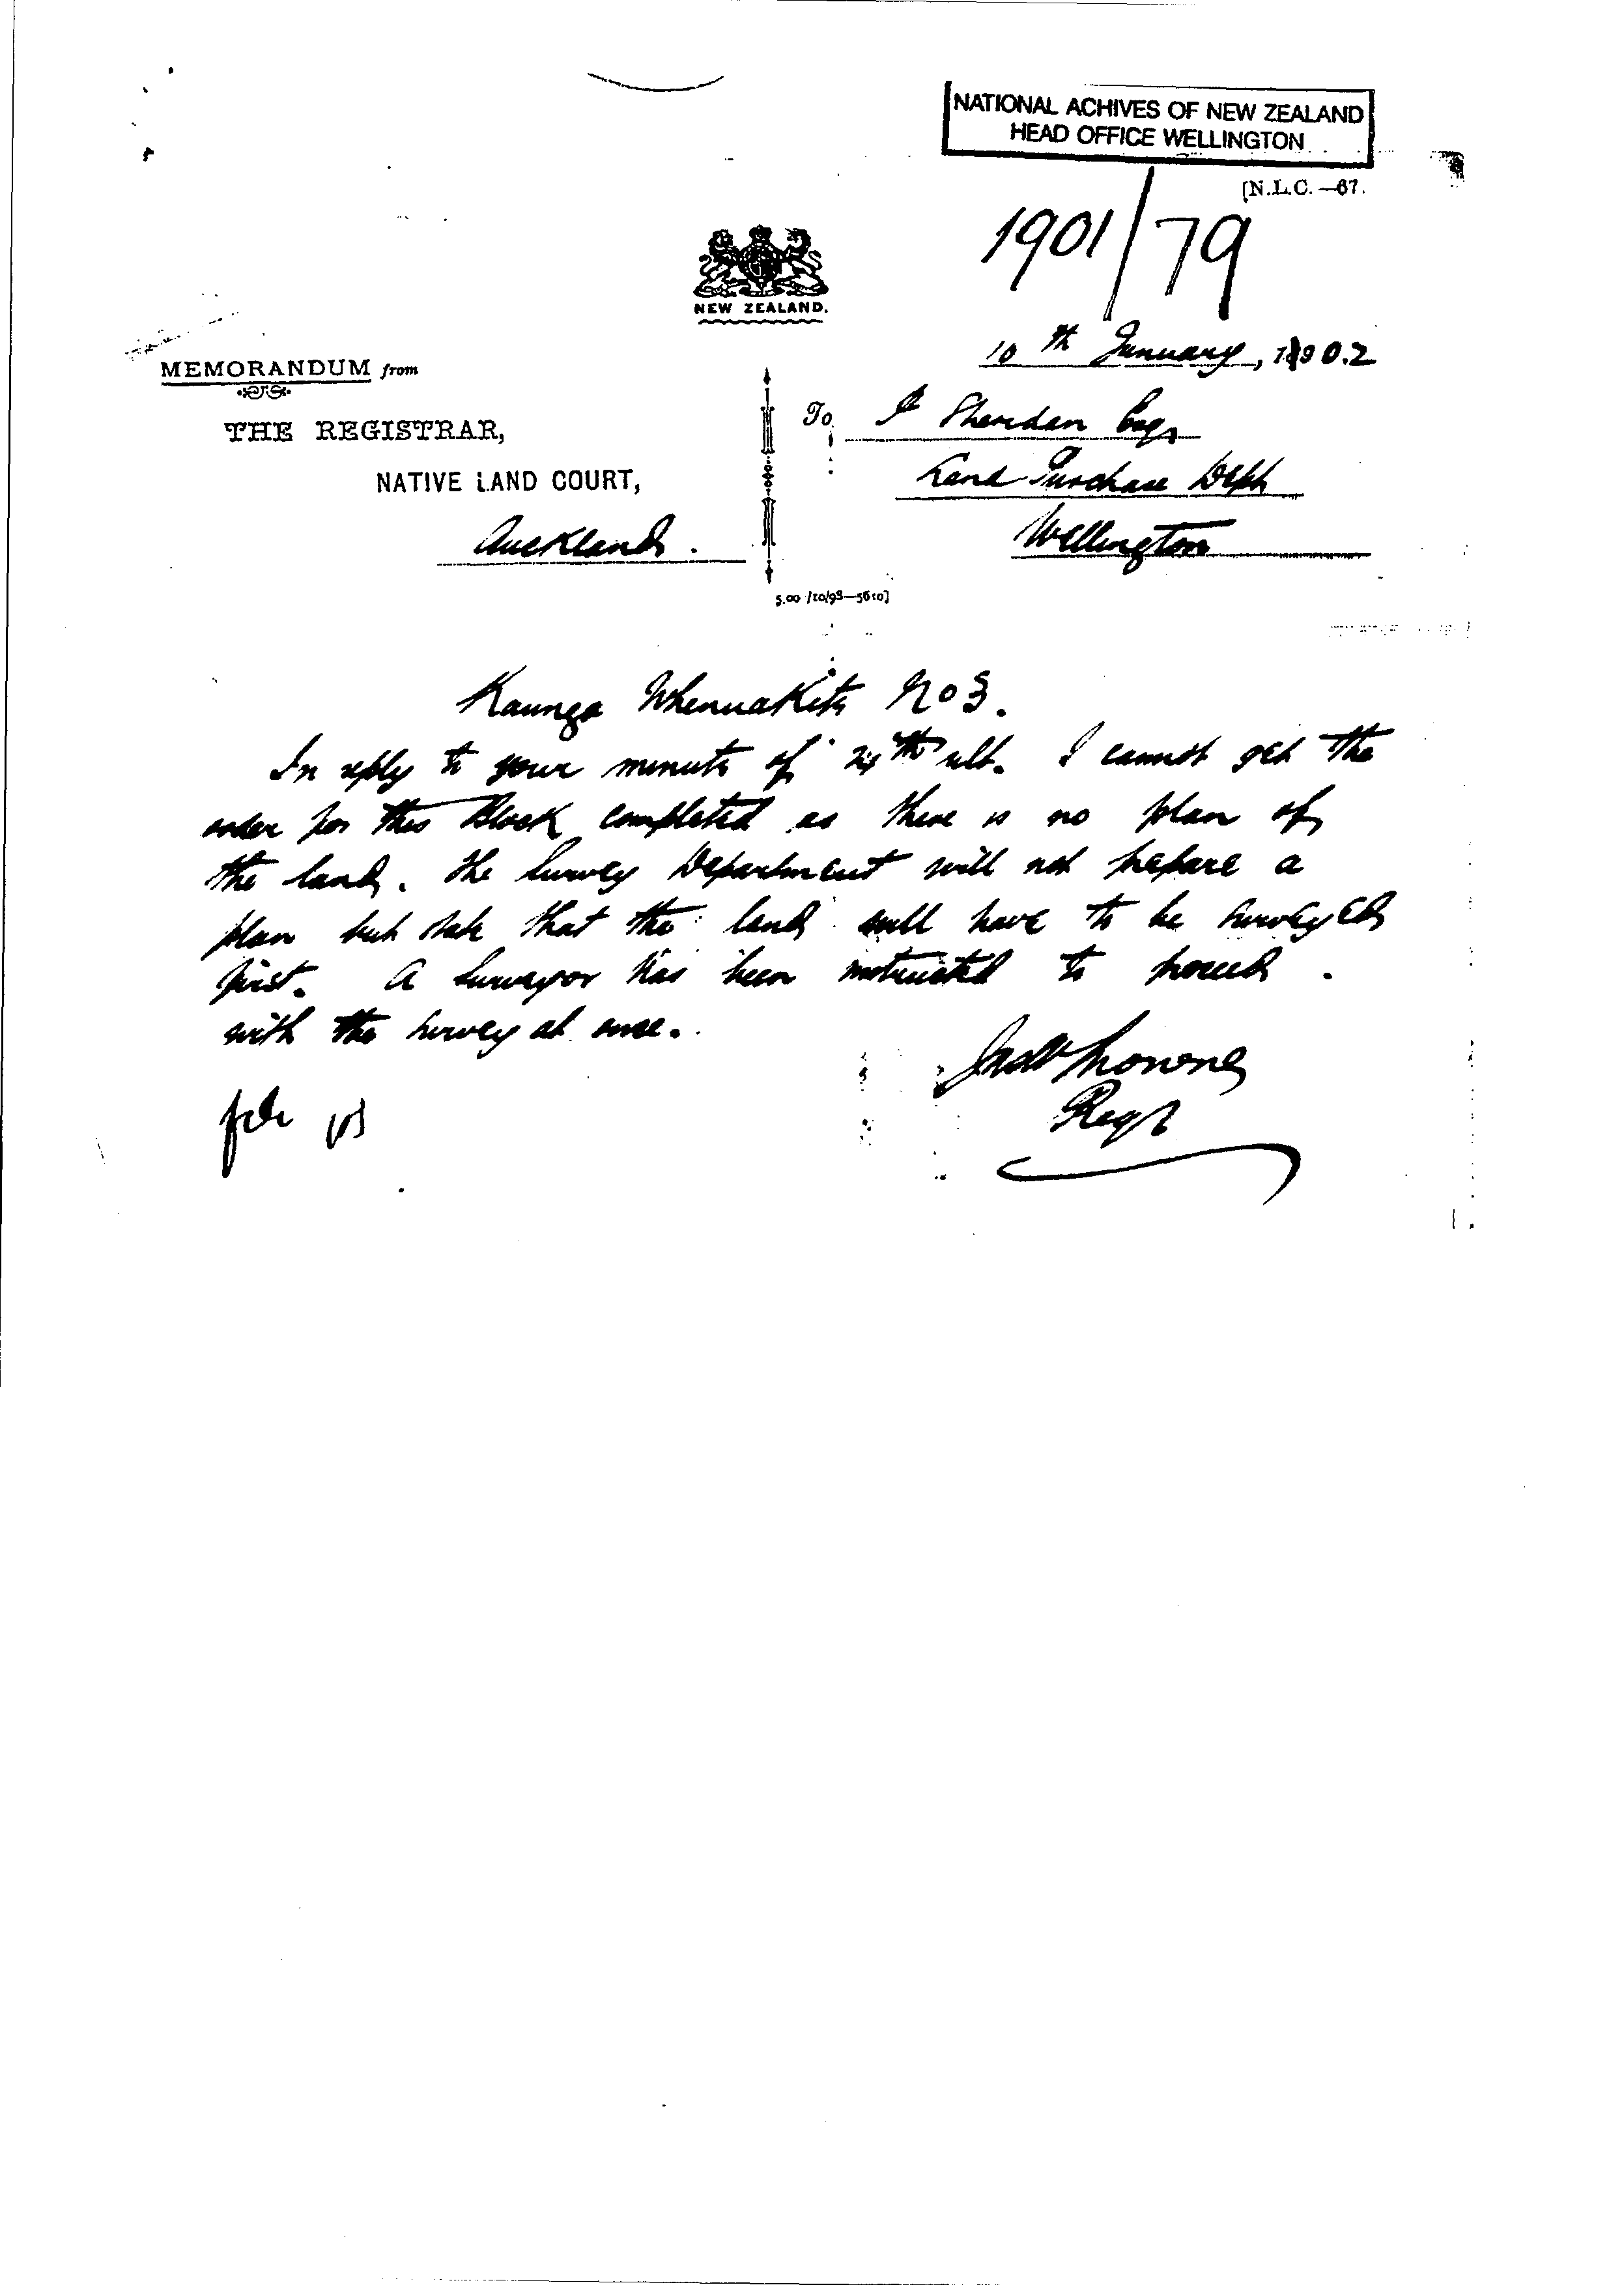 NATIONAL ACHIVES OF NEW ZEALAND
HEAD OFFICE WELLINGTON
[N.L.C.—67.
1901/79
NEW ZEALAND.
10th January, 1902
MEMORANDUM from
THE REGISTRAR,
NATIVE LAND COURT,
Auckland.
To P Sheridan Esqr
Land Purchase Dept
Wellington
5.00/10/98—5610]
Kaunga Whenuakite No 3.
In reply to your minute of 24th ult. I cannot get the
order for this Block completed as there is no plan of
the land. The Survey Department will not prepare a
plan but state that the land will have to be surveyed
first. A Surveyor has been instructed to proceed
with the survey at once.
Regr
file